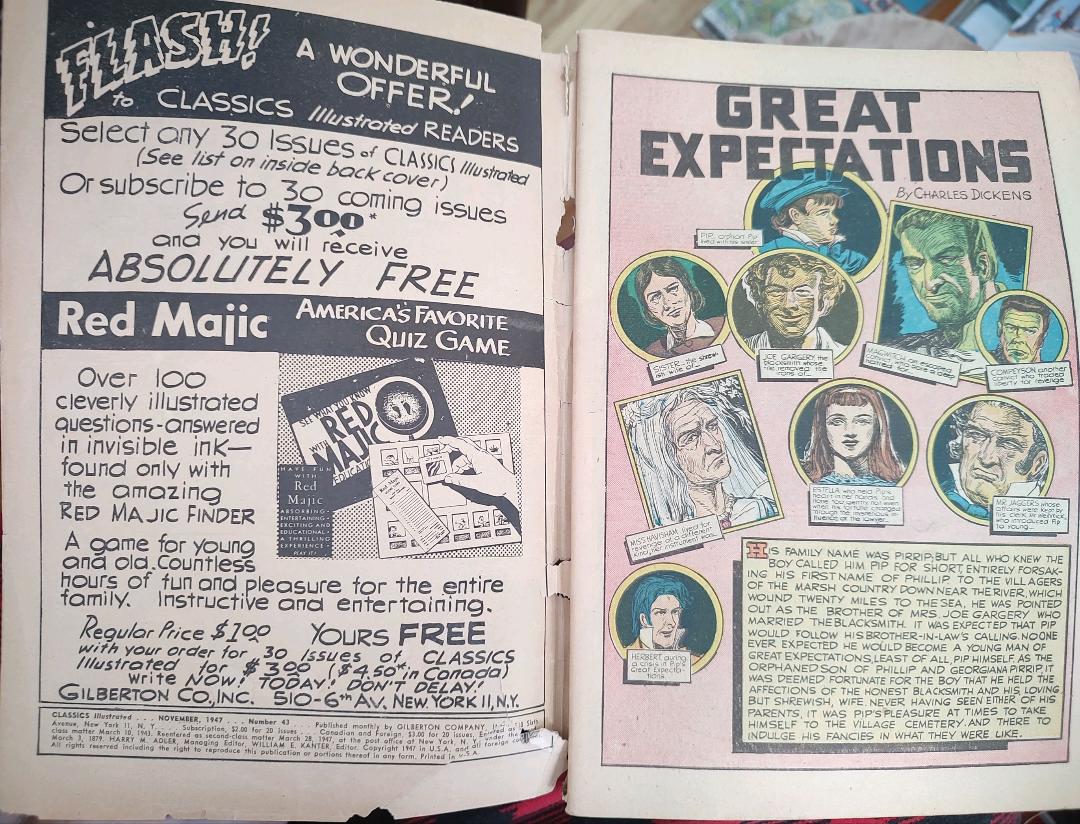 FLASH!
A WONDERFUL
OFFER!
to CLASSICS Illustrated READERS
Select any 30 Issues of CLASSICS Illustrated
(See list on inside back cover)
Or subscribe to 30 coming issues
Send $3.00*
and you will receive
ABSOLUTELY FREE
Red Majic
AMERICA'S FAVORITE
QUIZ GAME
Over 100
cleverly illustrated
questions-answered
in invisible ink—
found only with
the amazing
RED MAJIC FINDER
A game for young
and old. Countless
hours of fun and pleasure for the entire
family. Instructive and entertaining.
SEE WHAT YOU KNOW
WITH
RED
MAJIC
HAVE FUN
WITH
Red
Majic
ABSORBING-
ENTERTAINING-
EXCITING AND
EDUCATIONAL-
A THRILLING
EXPERIENCE-
PLAY IT!
Regular Price $1.00 YOURS FREE
with your order for 30 Issues of CLASSICS
Illustrated for $3.00 $4.50* in Canada)
Write NOW! TODAY! DON'T DELAY!
GILBERTON CO., INC. 510-6th AV. NEW YORK 11, N.Y.
CLASSICS Illustrated . . . NOVEMBER, 1947 . . . Number 43 . . . Published monthly by GILBERTON COMPANY, Sixth
Avenue, New York 11, N. Y. Subscription, $2.00 for 20 issues. Canadian and Foreign, $3.00 for 20 issues. Entered as
class matter March 10, 1943. Reentered as second-class matter March 28, 1947, at the post office at New York, N. Y. under the
March 3, 1879. HARRY M. ADLER, Managing Editor, WILLIAM E. KANTER, Editor. Copyright 1947 in U.S.A. and all foreign
All rights reserved including the right to reproduce this publication or portions thereof in any form. Printed in U.S.A.
GREAT
EXPECTATIONS
By CHARLES DICKENS
PIP, orphan Pip
lived with his sister
SISTER-the shrew-
ish wife of...
JOE GARGERY, the
blacksmith whose
file removed the
irons of...
MAGWITCH, an escaped
convict who
COMPEYSON another
convict who traded
liberty for revenge
MISS HAVISHAM lived for
revenge of a different
kind, her instrument was...
ESTELLA who held Pip's
heart in her hands, and
not even
when his fortune changed
through the mysterious in-
fluence of the lawyer...
MR. JAGGERS whose
affairs were kept by
his clerk Mr. Wemmick
who introduced Pip
to young...
HERBERT, during
a crisis in Pip's
Great Expecta-
tions.
HIS FAMILY NAME WAS PIRRIP; BUT ALL WHO KNEW THE
BOY CALLED HIM PIP FOR SHORT, ENTIRELY FORSAK-
ING HIS FIRST NAME OF PHILLIP. TO THE VILLAGERS
OF THE MARSH COUNTRY DOWN NEAR THE RIVER, WHICH
WOUND TWENTY MILES TO THE SEA, HE WAS POINTED
OUT AS THE BROTHER OF MRS. JOE GARGERY WHO
MARRIED THE BLACKSMITH. IT WAS EXPECTED THAT PIP
WOULD FOLLOW HIS BROTHER-IN-LAW'S CALLING. NO ONE
EVER EXPECTED HE WOULD BECOME A YOUNG MAN OF
GREAT EXPECTATIONS, LEAST OF ALL, PIP HIMSELF. AS THE
ORPHANED SON OF PHILLIP AND GEORGIANA PIRRIP, IT
WAS DEEMED FORTUNATE FOR THE BOY THAT HE HELD THE
AFFECTIONS OF THE HONEST BLACKSMITH AND HIS LOVING,
BUT SHREWISH, WIFE. NEVER HAVING SEEN EITHER OF HIS
PARENTS, IT WAS PIP'S PLEASURE AT TIMES TO TAKE
HIMSELF TO THE VILLAGE CEMETERY AND THERE TO
INDULGE HIS FANCIES IN WHAT THEY WERE LIKE.